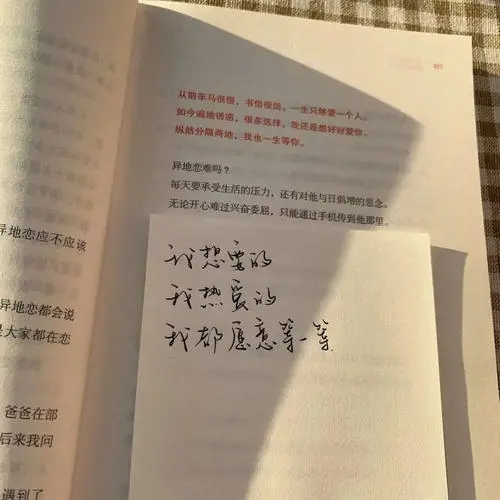 异地恋应不应该
异地恋都会说
是大家都在恋
爸爸在部
后来我问
遇到了
从前车马很慢，书信很远，一生只够爱一个人。
如今遍地诱惑，很多选择，我还是想好好爱你。
纵然分隔两地，我也一生等你。
异地恋难吗？
每天要承受生活的压力，还有对他与日俱增的思念。
无论开心难过兴奋委屈，只能通过手机传到他那里。
我想要的
我热爱的
我都愿意等一等